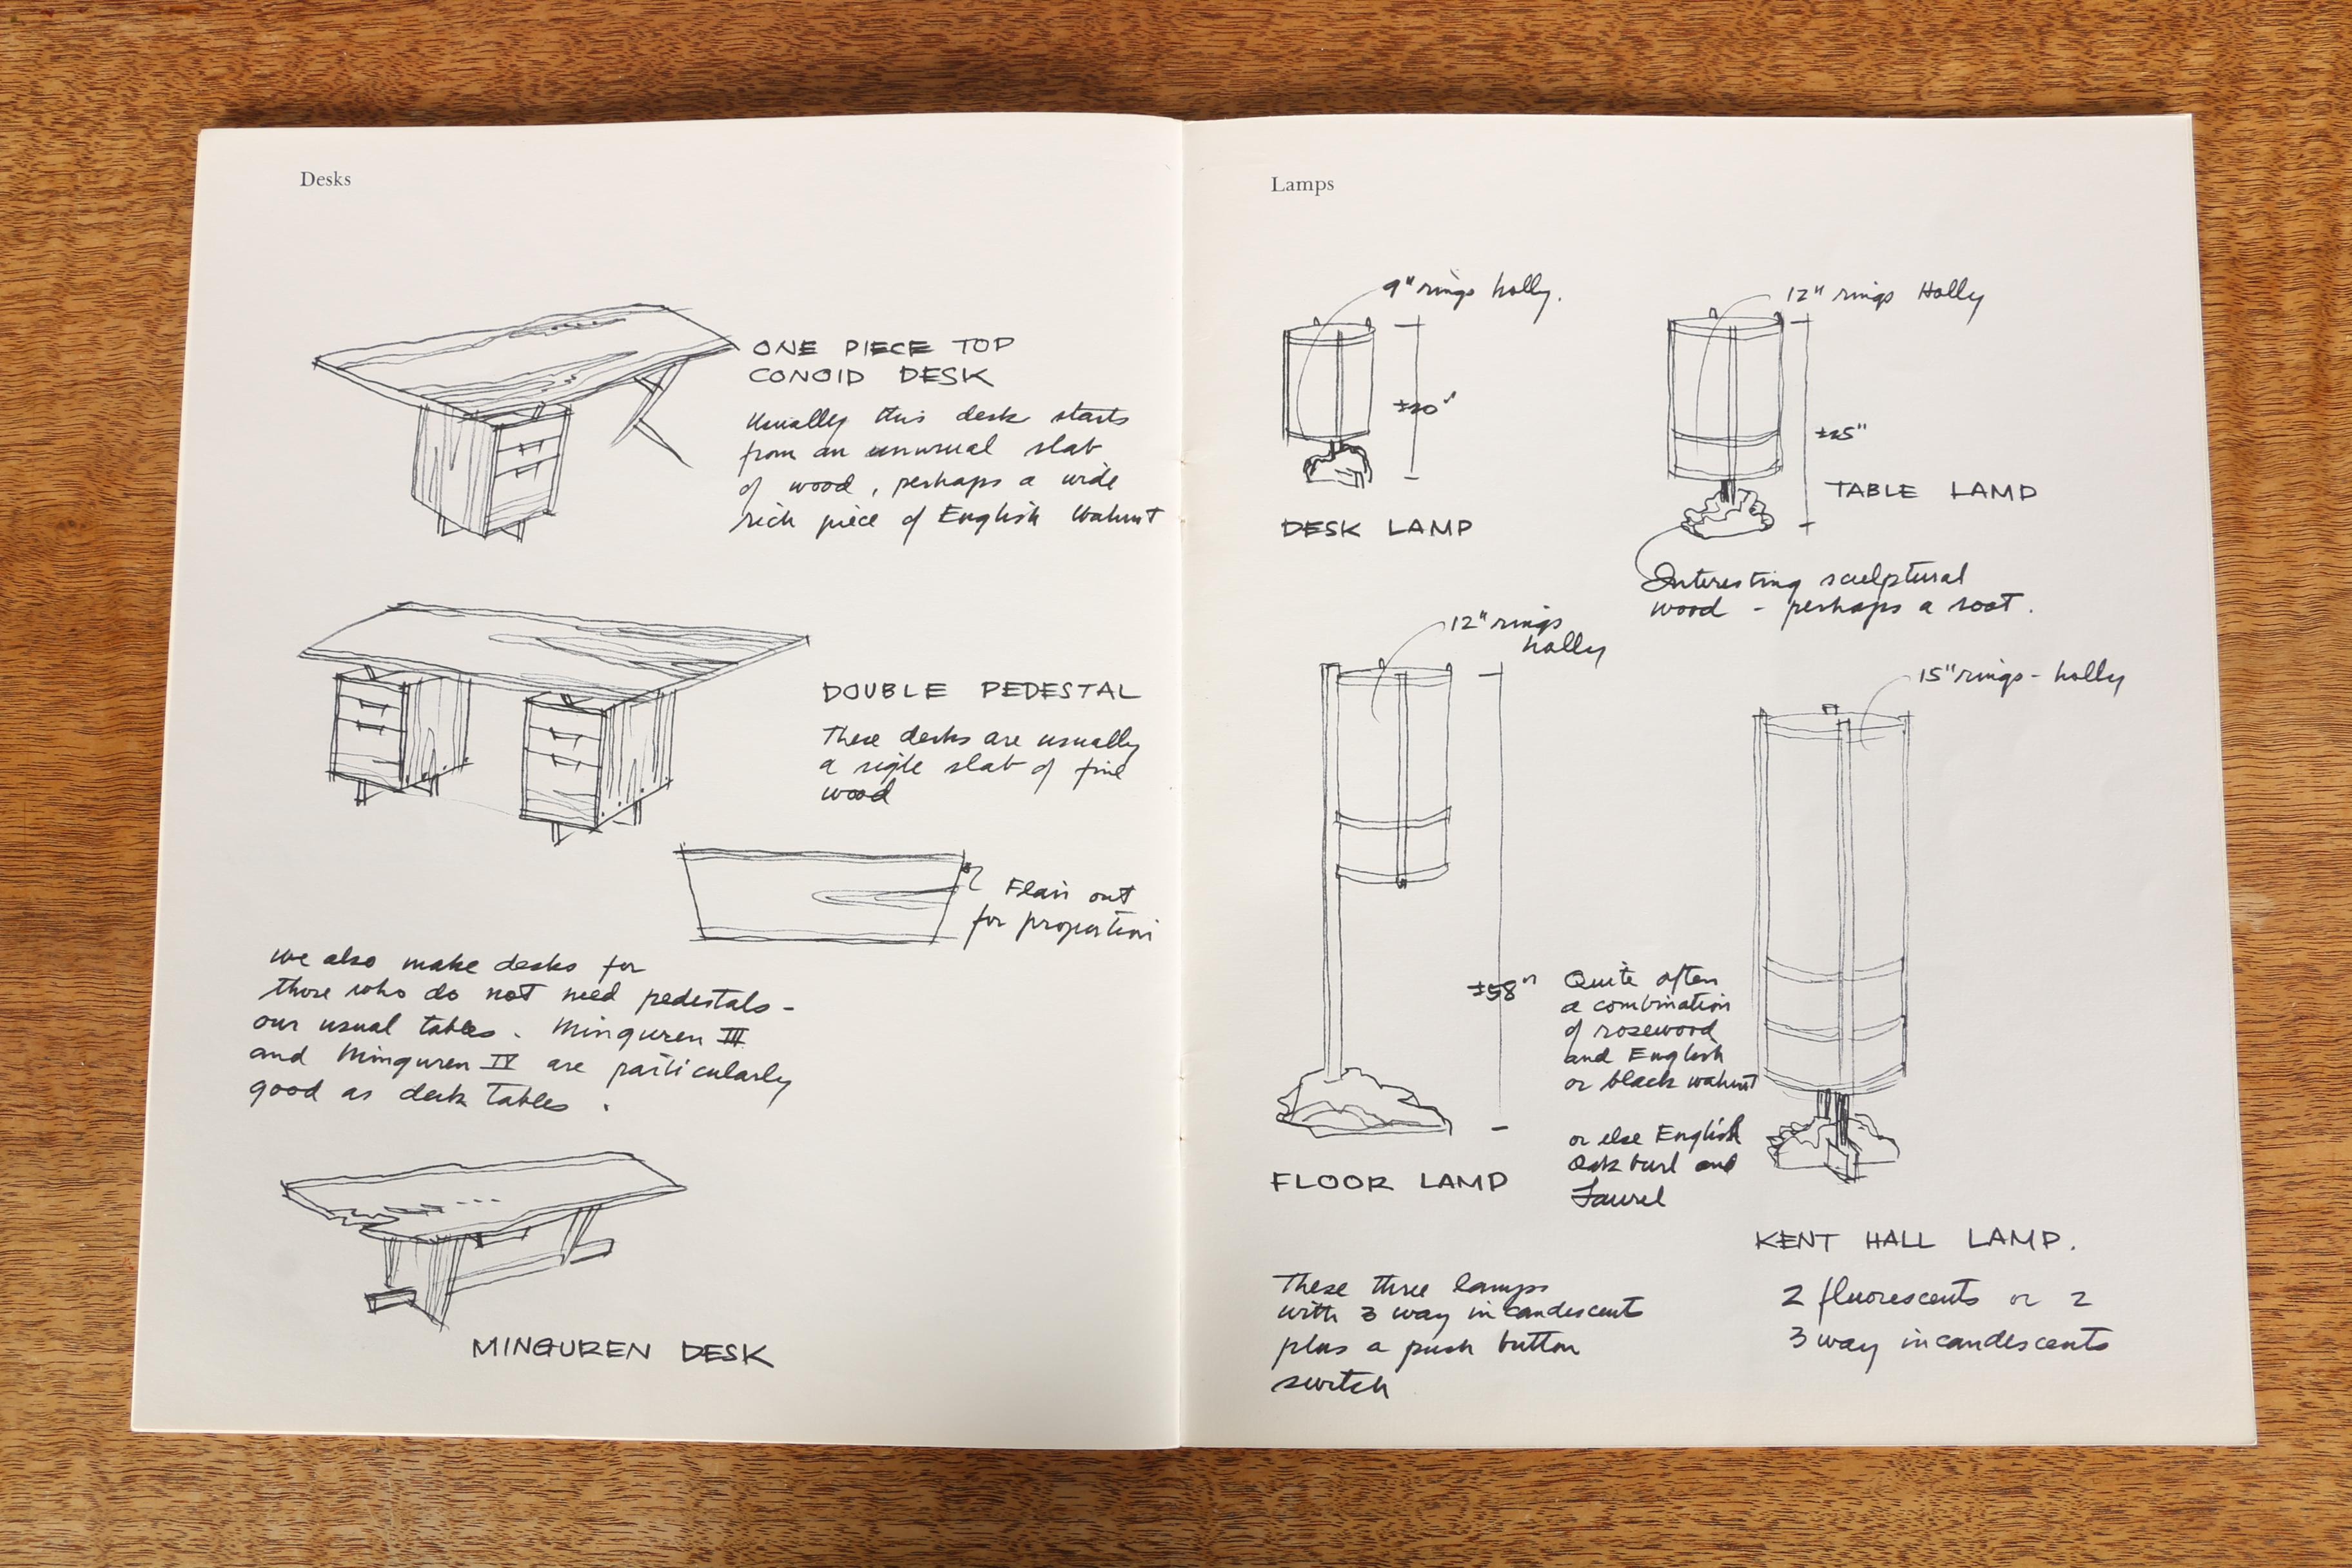 Desks
ONE PIECE TOP
CONOID DESK
Usually this desk starts
from an unusual slab
of wood, perhaps a wide
rich piece of English Walnut
DOUBLE PEDESTAL
These desks are usually
a sigle slab of fine
wood
Flair out
for proportion
we also make desks for
those who do not need pedestals -
our usual tables. Minguren III
and Minguren IV are particularly
good as desk tables.
MINGUREN DESK
Lamps
9" rings holly.
DESK LAMP
12" rings Holly
TABLE LAMP
Interesting sculptural
wood - perhaps a root.
12" rings
holly
±58"
FLOOR LAMP
Quite often
a combination
of rosewood
and English
or black walnut
or else English
Oak burl and
Laurel
15" rings - holly
KENT HALL LAMP.
These three lamps
with 3 way incandescents
plus a push button
switch
2 fluorescents or 2
3 way incandescents